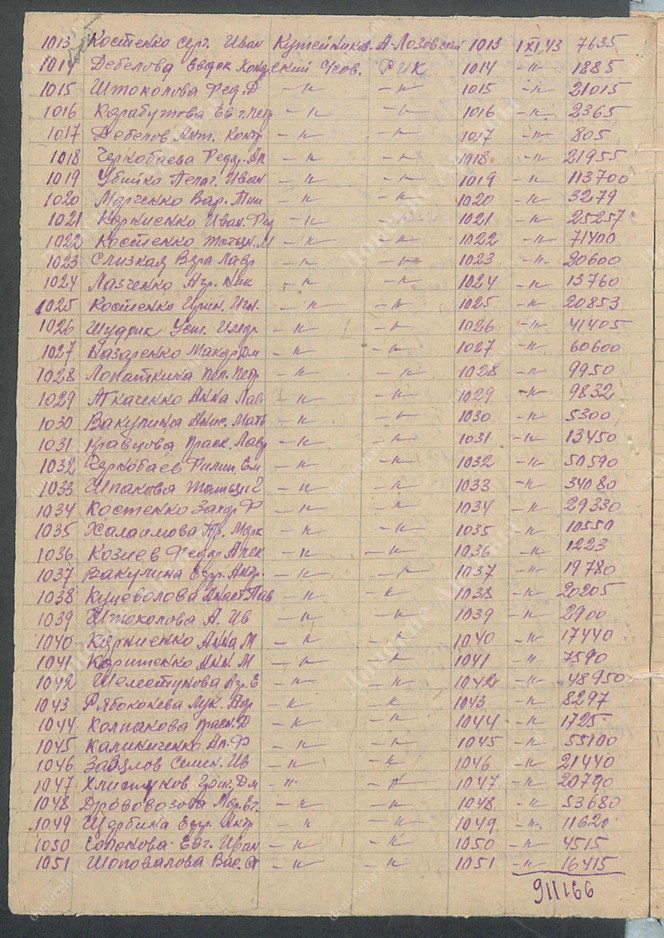 1013 Костенко Серг. Иван Кутейников. А-Лозовский 1013 1 XI 43 7635
1014 Дебелова Евдок Конд ский Усов. РИК 1014 -"- 1885
1015 Штоколова Фед. Ф -"- -"- 1015 -"- 21015
1016 Карабутова Евг Петр -"- -"- 1016 -"- 2365
1017 Дебелов Ант. Конр. -"- -"- 1017 -"- 805
1018 Черкобаева Федр. Ап -"- -"- 1018 -"- 21955
1019 Убийко Пелаг. Иван -"- -"- 1019 -"- 113700
1020 Марченко Вар. Тим -"- -"- 1020 -"- 3279
1021 Корниенко Иван. Фед -"- -"- 1021 -"- 25257
1022 Костенко Татьян. М -"- -"- 1022 -"- 71400
1023 Слизкая Вера Лавр -"- -"- 1023 -"- 20600
1024 Лазченко Агр. Ник -"- -"- 1024 -"- 13760
1025 Костенко Ирин. Игн. -"- -"- 1025 -"- 20853
1026 Шудрик Уст. -"- -"- 1026 -"- 41405
1027 Назаренко Макар Дм -"- -"- 1027 -"- 60600
1028 Лопаткина Пел. Петр -"- -"- 1028 -"- 9950
1029 Ткаченко Анна Лав -"- -"- 1029 -"- 9832
1030 Вакулина Анис. Матв -"- -"- 1030 -"- 5300
1031 Кравцова Праск. Лавр -"- -"- 1031 -"- 13450
1032 Черкобаев Филип Ем -"- -"- 1032 -"- 50590
1033 Шпакова -"- -"- 1033 -"- 34080
1034 Костенко Захар Ф -"- -"- 1034 -"- 29330
1035 Халаимова Мрк -"- -"- 1035 -"- 10550
1036 Козиев Федор Алек -"- -"- 1036 -"- 1223
1037 Вакулина Евдр. Андр. -"- -"- 1037 -"- 19780
1038 Куцеволова Анист Пав -"- -"- 1038 -"- 20205
1039 Штоколова А. Ив -"- -"- 1039 -"- 2900
1040 Корниенко Анна М -"- -"- 1040 -"- 17440
1041 Коришенко Анн. М -"- -"- 1041 -"- 7590
1042 Шелестунова Агр. Е -"- -"- 1042 -"- 48950
1043 Рябоконева Лук. Аар -"- -"- 1043 -"- 8297
1044 Колпакова Праск. Ф -"- -"- 1044 -"- 1725
1045 Калиниченко Ан. Ф -"- -"- 1045 -"- 55100
1046 Завзлов Семен. Ив -"- -"- 1046 -"- 21440
1047 Хлистуков Григ. Дм -"- -"- 1047 -"- 20790
1048 Дрововозова Мар. Ег. -"- -"- 1048 -"- 53680
1049 Щербина Евдр. Антр -"- -"- 1049 -"- 11620
1050 Сопокова Евг. Иван -"- -"- 1050 -"- 4515
1051 Шоповалова Вас. Я -"- -"- 1051 -"- 16415
911166